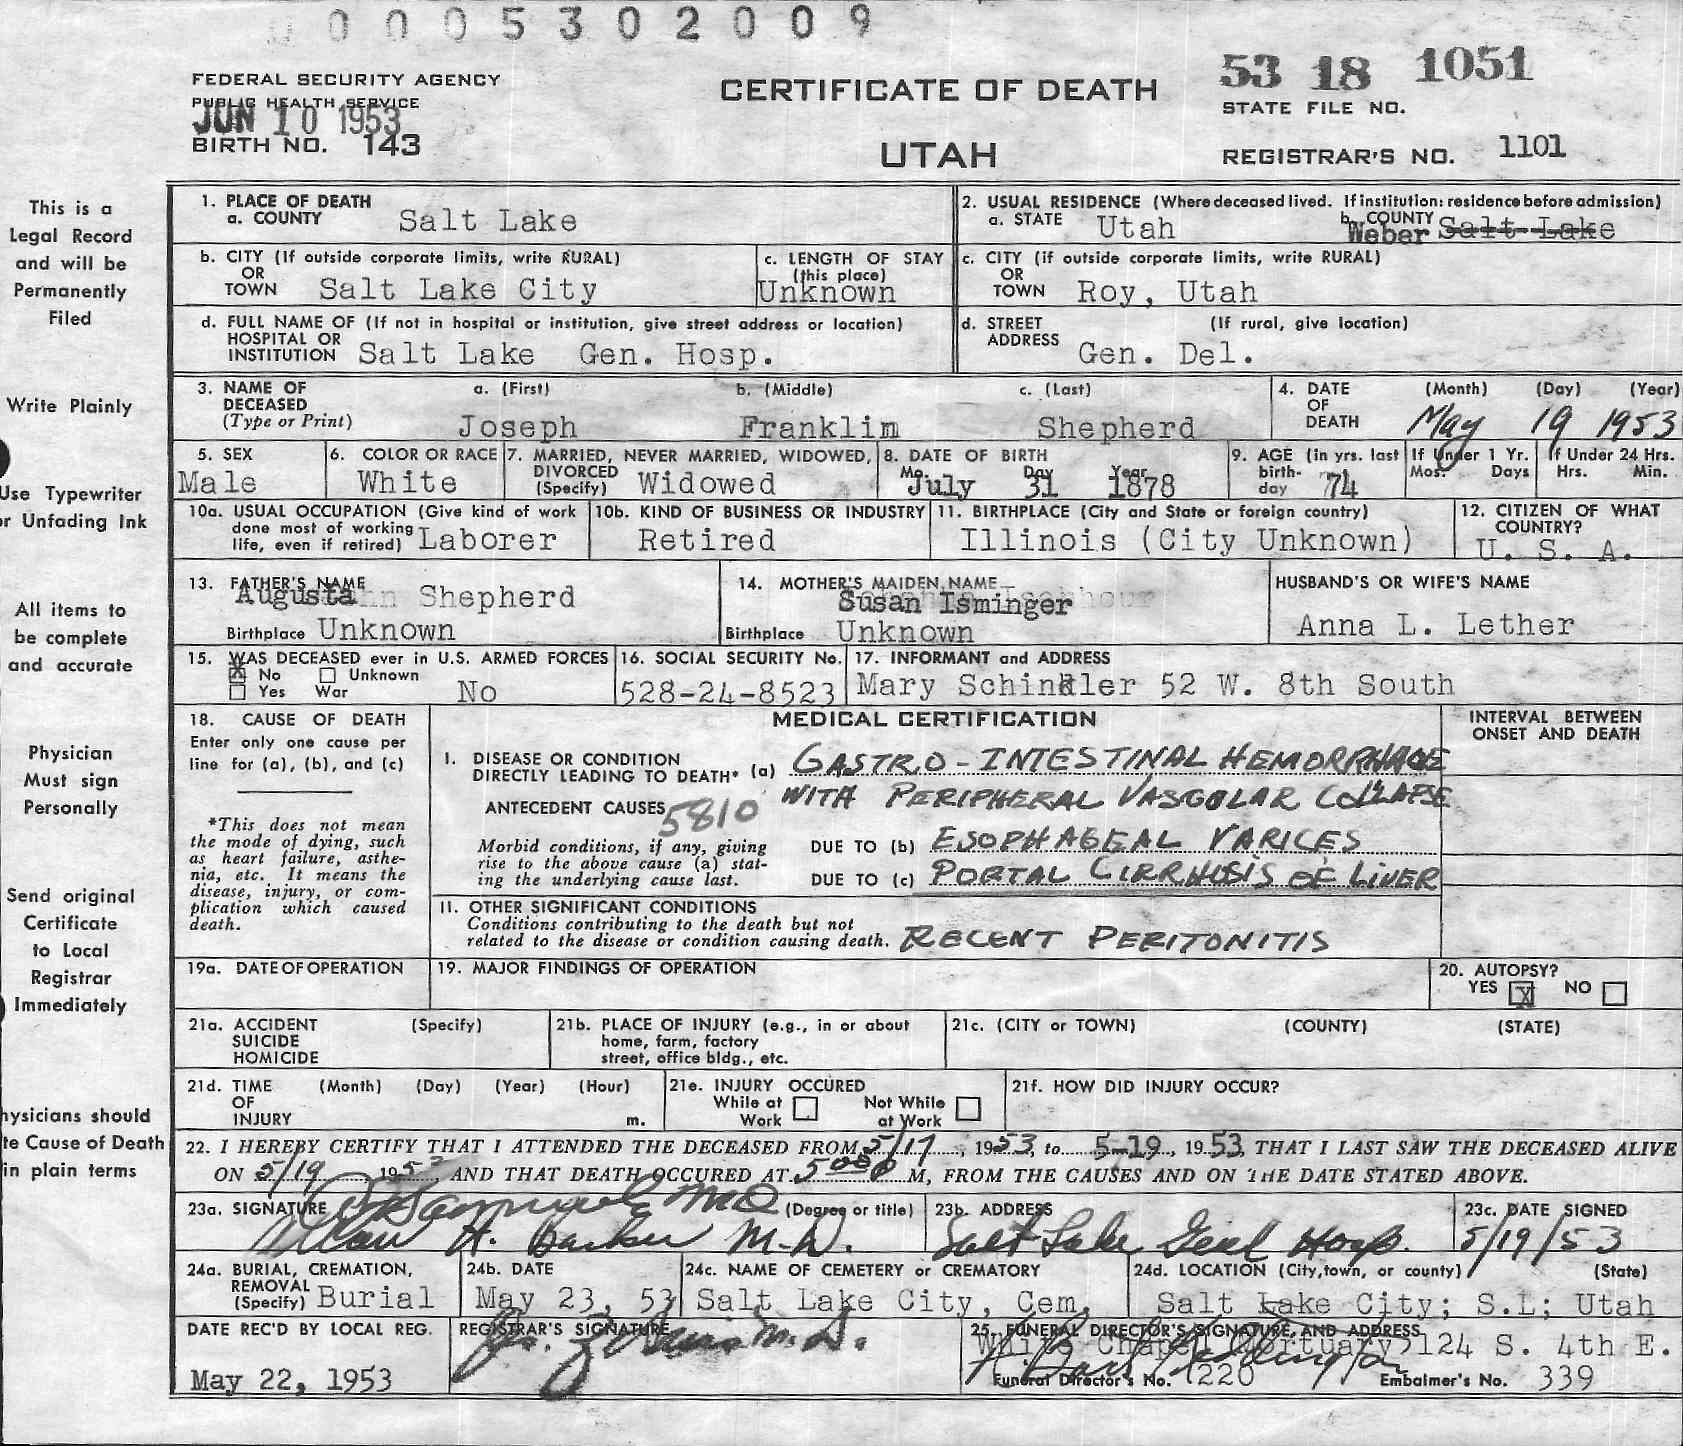 0 0 0 5 3 0 2 0 0 9
FEDERAL SECURITY AGENCY
PUBLIC HEALTH SERVICE
JUN 10 1953
BIRTH NO. 143
CERTIFICATE OF DEATH
UTAH
53 18 1051
STATE FILE NO.
REGISTRAR'S NO. 1101
This is a
Legal Record
and will be
Permanently
Filed
Write Plainly
Use Typewriter
or Unfading Ink
All items to
be complete
and accurate
Physician
Must sign
Personally
Send original
Certificate
to Local
Registrar
Immediately
hysicians should
te Cause of Death
in plain terms
1. PLACE OF DEATH
a. COUNTY Salt Lake
2. USUAL RESIDENCE (Where deceased lived. If institution: residence before admission)
a. STATE Utah b. COUNTY Weber Salt Lake
b. CITY (If outside corporate limits, write RURAL)
OR
TOWN Salt Lake City
c. LENGTH OF STAY
(this place)
Unknown
c. CITY (if outside corporate limits, write RURAL)
OR
TOWN Roy, Utah
d. FULL NAME OF (If not in hospital or institution, give street address or location)
HOSPITAL OR
INSTITUTION Salt Lake Gen. Hosp.
d. STREET (If rural, give location)
ADDRESS Gen. Del.
3. NAME OF DECEASED (Type or Print)
a. (First) b. (Middle) c. (Last)
Joseph Franklim Shepherd
4. DATE OF DEATH (Month) (Day) (Year)
May 19 1953
5. SEX
Male
6. COLOR OR RACE
White
7. MARRIED, NEVER MARRIED, WIDOWED,
DIVORCED
(Specify) Widowed
8. DATE OF BIRTH
Mo. Day Year
July 31 1878
9. AGE (in yrs. last
birth-
day 74
If Under 1 Yr.
Mos. Days
If Under 24 Hrs.
Hrs. Min.
10a. USUAL OCCUPATION (Give kind of work
done most of working
life, even if retired) Laborer
10b. KIND OF BUSINESS OR INDUSTRY
Retired
11. BIRTHPLACE (City and State or foreign country)
Illinois (City Unknown)
12. CITIZEN OF WHAT
COUNTRY?
U. S. A.
13. FATHER'S NAME
Augusta Shepherd
Birthplace Unknown
14. MOTHER'S MAIDEN NAME
Susan Isminger
Birthplace Unknown
HUSBAND'S OR WIFE'S NAME
Anna L. Lether
15. WAS DECEASED ever in U.S. ARMED FORCES
X No Unknown
Yes War No
16. SOCIAL SECURITY No.
528-24-8523
17. INFORMANT and ADDRESS
Mary Schinkler 52 W. 8th South
18. CAUSE OF DEATH
Enter only one cause per
line for (a), (b), and (c)
*This does not mean
the mode of dying, such
as heart failure, asthe-
nia, etc. It means the
disease, injury, or com-
plication which caused
death.
MEDICAL CERTIFICATION
INTERVAL BETWEEN
ONSET AND DEATH
I. DISEASE OR CONDITION
DIRECTLY LEADING TO DEATH* (a) GASTRO-INTESTINAL HEMORRHAGE
WITH PERIPHERAL VASCULAR COLLAPSE
ANTECEDENT CAUSES 5810
Morbid conditions, if any, giving
rise to the above cause (a) stat-
ing the underlying cause last.
DUE TO (b) ESOPHAGEAL VARICES
DUE TO (c) PORTAL CIRRHOSIS OF LIVER
II. OTHER SIGNIFICANT CONDITIONS
Conditions contributing to the death but not
related to the disease or condition causing death. RECENT PERITONITIS
19a. DATE OF OPERATION
19. MAJOR FINDINGS OF OPERATION
20. AUTOPSY?
YES X NO
21a. ACCIDENT (Specify)
SUICIDE
HOMICIDE
21b. PLACE OF INJURY (e.g., in or about
home, farm, factory
street, office bldg., etc.
21c. (CITY or TOWN) (COUNTY) (STATE)
21d. TIME (Month) (Day) (Year) (Hour)
OF
INJURY m.
21e. INJURY OCCURED
While at Work Not While at Work
21f. HOW DID INJURY OCCUR?
22. I HEREBY CERTIFY THAT I ATTENDED THE DECEASED FROM 5/17, 1953, to 5-19, 1953, THAT I LAST SAW THE DECEASED ALIVE
ON 5/19 1953 AND THAT DEATH OCCURED AT 5:00 P M, FROM THE CAUSES AND ON THE DATE STATED ABOVE.
23a. SIGNATURE (Degree or title)
MD
H. Barker M.D.
23b. ADDRESS
Salt Lake Genl Hosp.
23c. DATE SIGNED
5/19/53
24a. BURIAL, CREMATION,
REMOVAL
(Specify) Burial
24b. DATE
May 23, 53
24c. NAME OF CEMETERY or CREMATORY
Salt Lake City, Cem,
24d. LOCATION (City, town, or county) (State)
Salt Lake City; S.L; Utah
DATE REC'D BY LOCAL REG.
May 22, 1953
REGISTRAR'S SIGNATURE
M.D.
25. FUNERAL DIRECTOR'S SIGNATURE, AND ADDRESS
Chapel Mortuary 124 S. 4th E.
Funeral Director's No. 220 Embalmer's No. 339